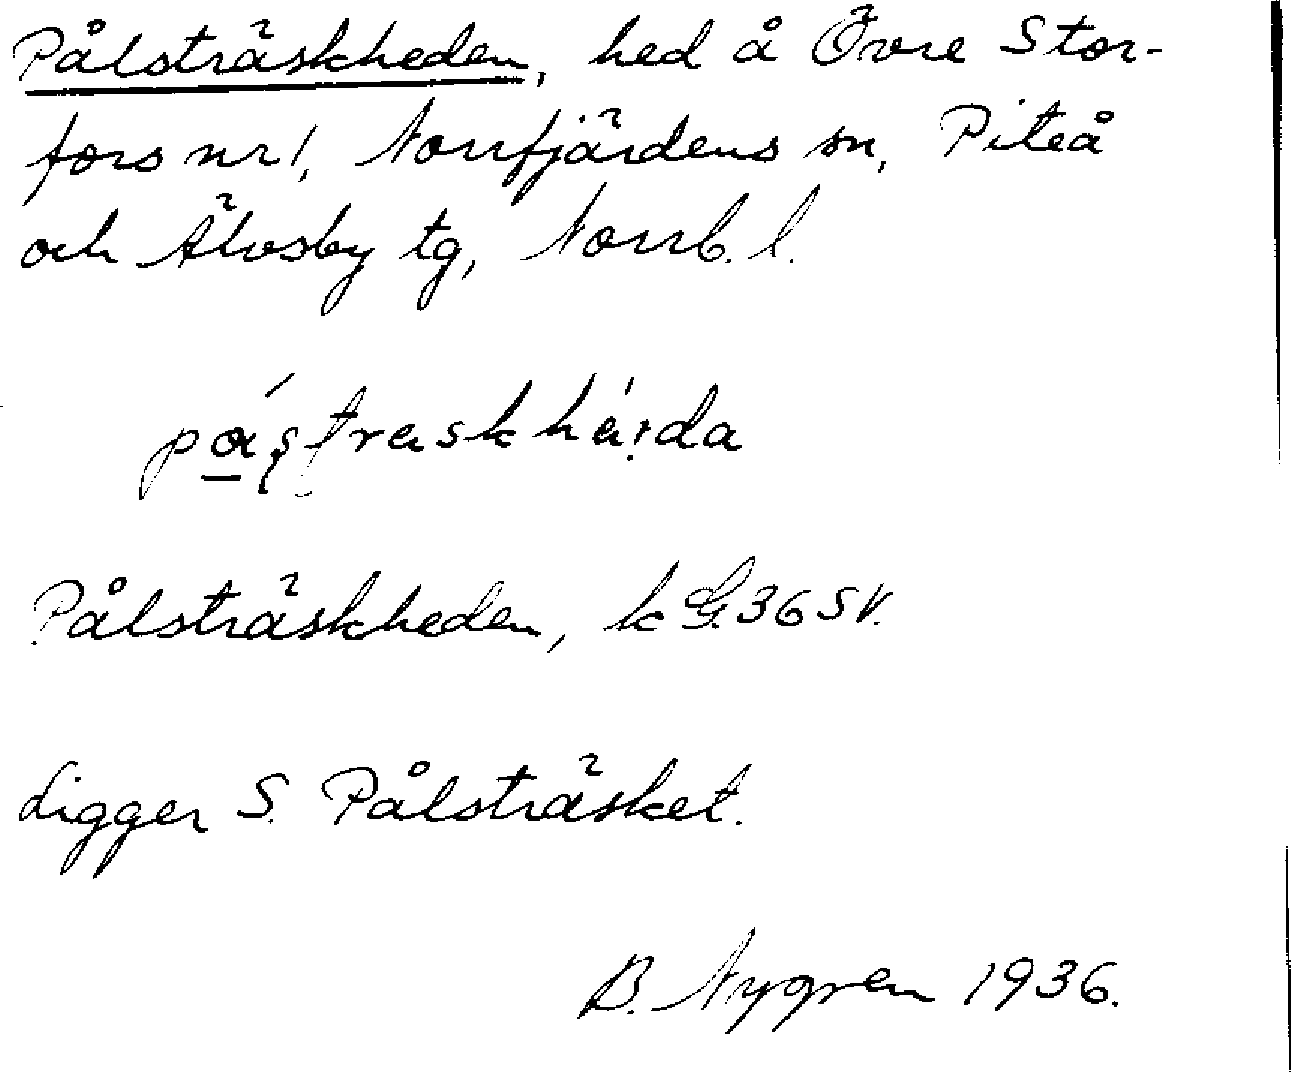 Pålsträskheden, hed å Övre Stor-
fors nr 1, Norrfjärdens sn, Piteå
och Älvsby tg, Norrb. l.
Pålsträskheden, k G. 36 SV.
Ligger S. Pålsträsket.
B. Nygren 1936.